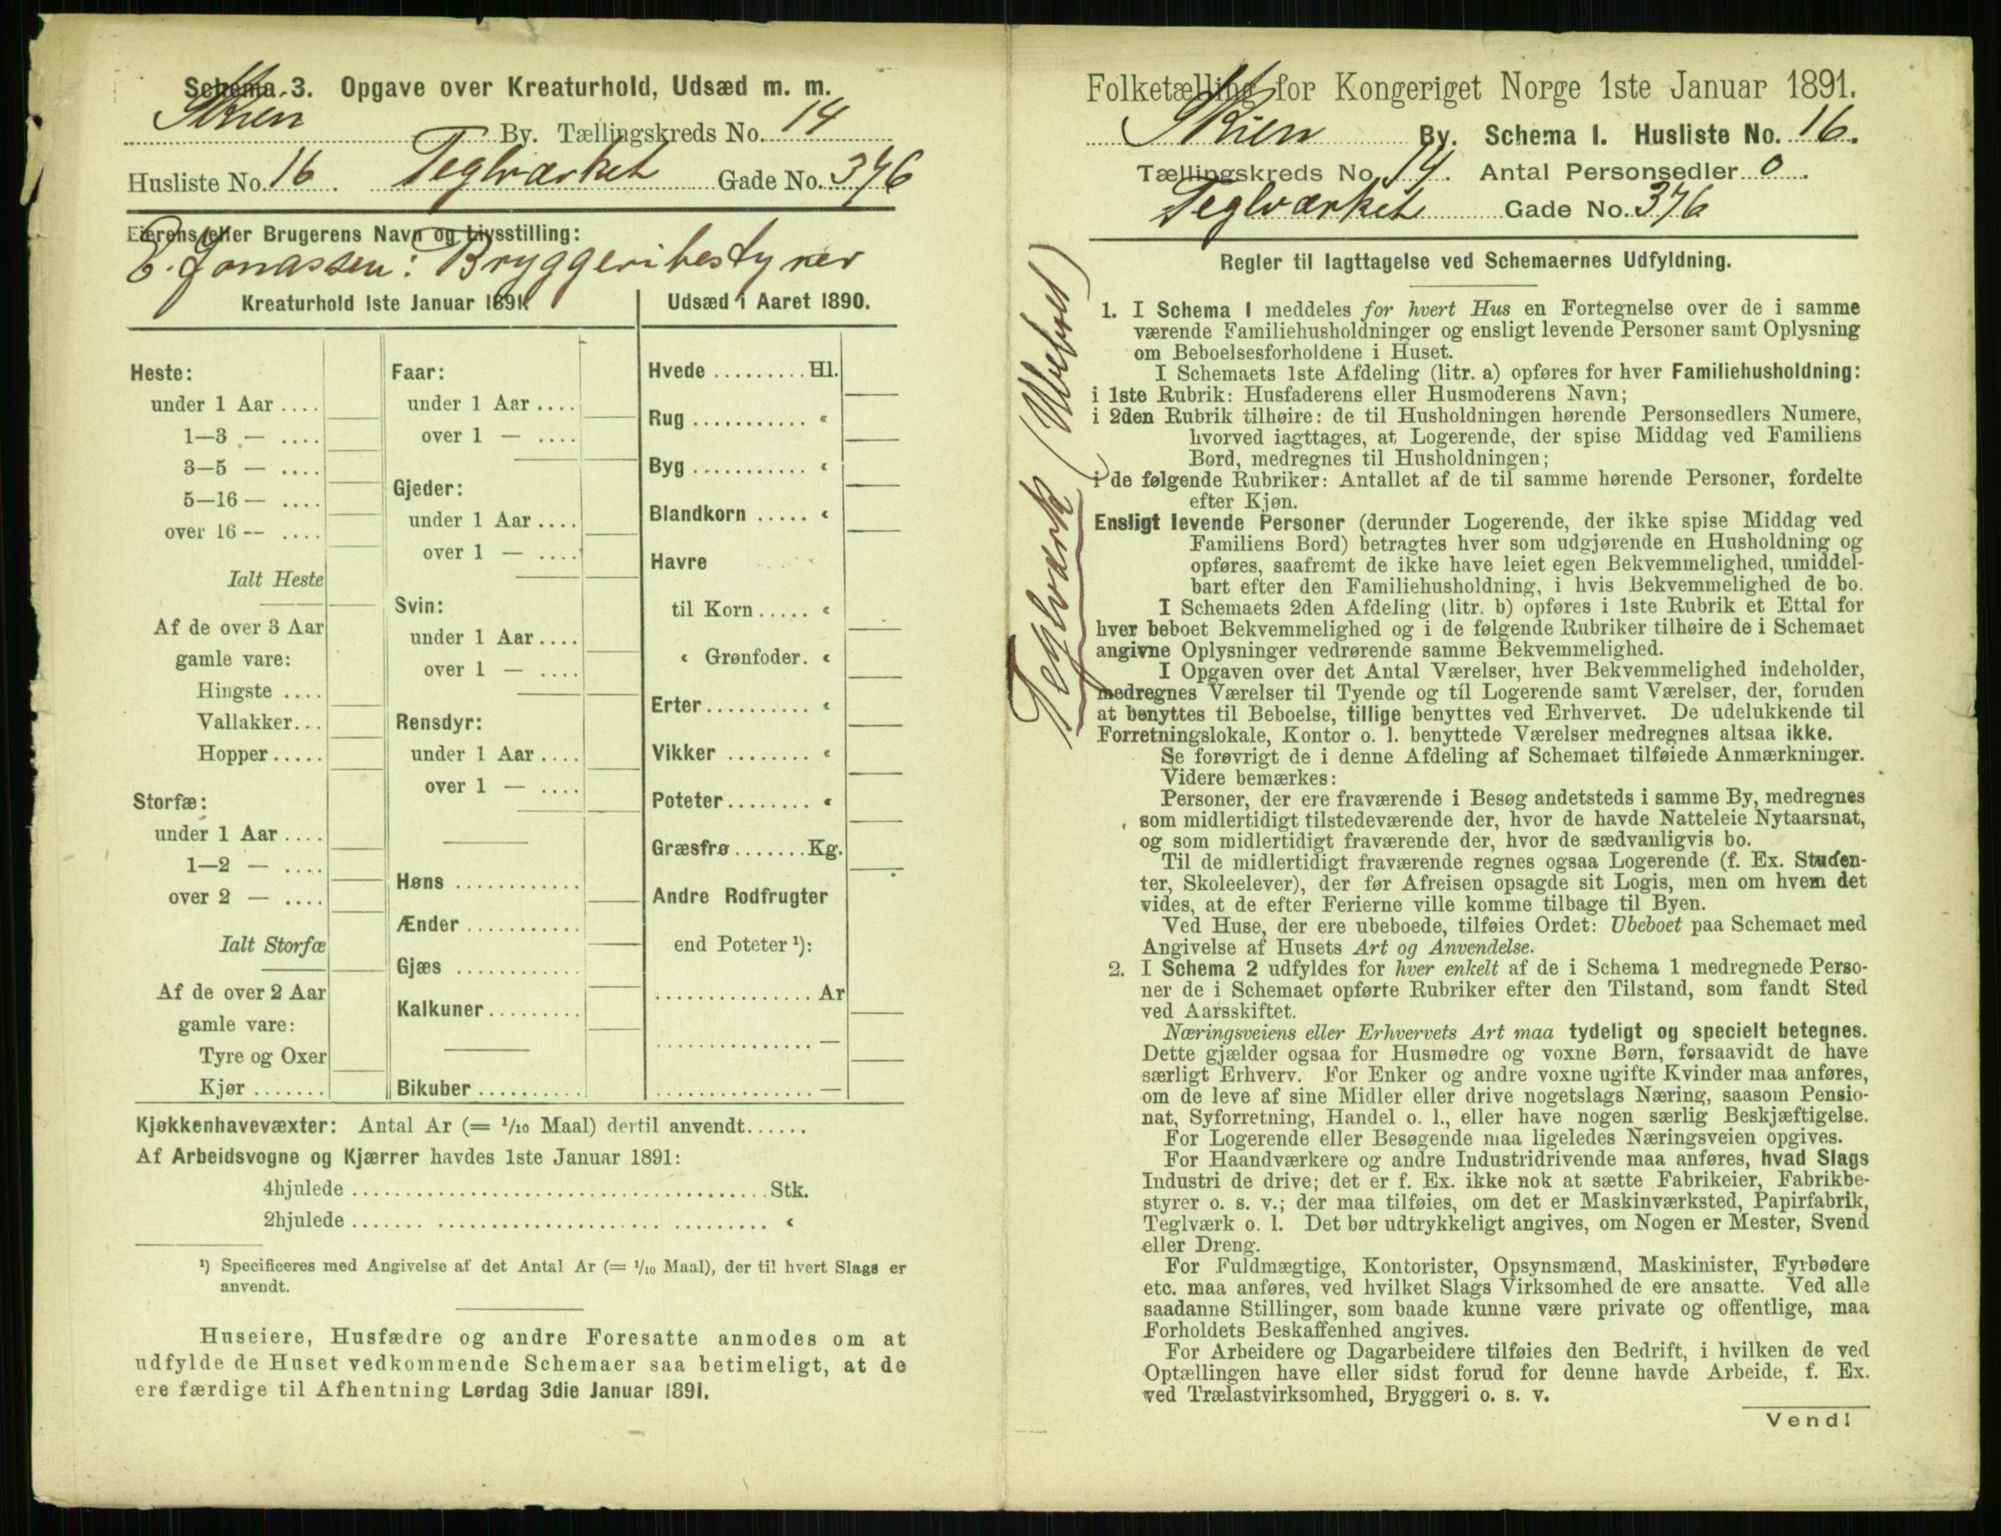 Schema 3. Opgave over Kreaturhold, Udsæd m. m.
Skien By. Tællingskreds No. 14
Husliste No. 16. Teglværket Gade No. 376
Eierens eller Brugerens Navn og Livsstilling:
E. Jonassen: Bryggeribestyrer
Kreaturhold 1ste Januar 1891.
Heste:
under 1 Aar ....
1—3 — ....
3—5 — ....
5—16 — ....
over 16 — ....
Ialt Heste
Af de over 3 Aar
gamle vare:
Hingste ....
Vallakker...
Hopper.....
Storfæ:
under 1 Aar ....
1—2 — ....
over 2 — ....
Ialt Storfæ
Af de over 2 Aar
gamle vare:
Tyre og Oxer
Kjør .......
Faar:
under 1 Aar ....
over 1 — ....
Gjeder:
under 1 Aar ....
over 1 — ....
Svin:
under 1 Aar ....
over 1 — ....
Rensdyr:
under 1 Aar ....
over 1 — ....
Høns ............
Ænder ...........
Gjæs ............
Kalkuner.........
Bikuber..........
Udsæd i Aaret 1890.
Hvede ......... Hl.
Rug ........... «
Byg ........... «
Blandkorn ..... «
Havre
til Korn ..... «
« Grønfoder. «
Erter.......... «
Vikker ........ «
Poteter........ «
Græsfrø....... Kg.
Andre Rodfrugter
end Poteter ¹):
............... Ar
............... —
............... —
Kjøkkenhavevæxter: Antal Ar (= 1/10 Maal) dertil anvendt......
Af Arbeidsvogne og Kjærrer havdes 1ste Januar 1891:
4hjulede ..................................... Stk.
2hjulede ..................................... «
¹) Specificeres med Angivelse af det Antal Ar (= 1/10 Maal), der til hvert Slags er
anvendt.
Huseiere, Husfædre og andre Foresatte anmodes om at
udfylde de Huset vedkommende Schemaer saa betimeligt, at de
ere færdige til Afhentning Lørdag 3die Januar 1891.
Folketælling for Kongeriget Norge 1ste Januar 1891.
Skien By. Schema I. Husliste No. 16.
Tællingskreds No. 14. Antal Personsedler 0.
Teglværket Gade No. 376
Teglværk (Ubeboet)
Regler til Iagttagelse ved Schemaernes Udfyldning.
1. I Schema 1 meddeles for hvert Hus en Fortegnelse over de i samme
værende Familiehusholdninger og ensligt levende Personer samt Oplysning
om Beboelsesforholdene i Huset.
I Schemaets 1ste Afdeling (litr. a) opføres for hver Familiehusholdning:
i 1ste Rubrik: Husfaderens eller Husmoderens Navn;
i 2den Rubrik tilhøire: de til Husholdningen hørende Personsedlers Numere,
hvorved iagttages, at Logerende, der spise Middag ved Familiens
Bord, medregnes til Husholdningen;
i de følgende Rubriker: Antallet af de til samme hørende Personer, fordelte
efter Kjøn.
Ensligt levende Personer (derunder Logerende, der ikke spise Middag ved
Familiens Bord) betragtes hver som udgjørende en Husholdning og
opføres, saafremt de ikke have leiet egen Bekvemmelighed, umiddel-
bart efter den Familiehusholdning, i hvis Bekvemmelighed de bo.
I Schemaets 2den Afdeling (litr. b) opføres i 1ste Rubrik et Ettal for
hver beboet Bekvemmelighed og i de følgende Rubriker tilhøire de i Schemaet
angivne Oplysninger vedrørende samme Bekvemmelighed.
I Opgaven over det Antal Værelser, hver Bekvemmelighed indeholder,
medregnes Værelser til Tyende og til Logerende samt Værelser, der, foruden
at benyttes til Beboelse, tillige benyttes ved Erhvervet. De udelukkende til
Forretningslokale, Kontor o. l. benyttede Værelser medregnes altsaa ikke.
Se forøvrigt de i denne Afdeling af Schemaet tilføiede Anmærkninger.
Videre bemærkes:
Personer, der ere fraværende i Besøg andetsteds i samme By, medregnes
som midlertidigt tilstedeværende der, hvor de havde Natteleie Nytaarsnat,
og som midlertidigt fraværende der, hvor de sædvanligvis bo.
Til de midlertidigt fraværende regnes ogsaa Logerende (f. Ex. Studen-
ter, Skoleelever), der før Afreisen opsagde sit Logis, men om hvem det
vides, at de efter Ferierne ville komme tilbage til Byen.
Ved Huse, der ere ubeboede, tilføies Ordet: Ubeboet paa Schemaet med
Angivelse af Husets Art og Anvendelse.
2. I Schema 2 udfyldes for hver enkelt af de i Schema 1 medregnede Perso-
ner de i Schemaet opførte Rubriker efter den Tilstand, som fandt Sted
ved Aarsskiftet.
Næringsveiens eller Erhvervets Art maa tydeligt og specielt betegnes.
Dette gjælder ogsaa for Husmødre og voxne Børn, forsaavidt de have
særligt Erhverv. For Enker og andre voxne ugifte Kvinder maa anføres,
om de leve af sine Midler eller drive nogetslags Næring, saasom Pensio-
nat, Syforretning, Handel o. l., eller have nogen særlig Beskjæftigelse.
For Logerende eller Besøgende maa ligeledes Næringsveien opgives.
For Haandværkere og andre Industridrivende maa anføres, hvad Slags
Industri de drive; det er f. Ex. ikke nok at sætte Fabrikeier, Fabrikbe-
styrer o. s. v.; der maa tilføies, om det er Maskinværksted, Papirfabrik,
Teglværk o. l. Det bør udtrykkeligt angives, om Nogen er Mester, Svend
eller Dreng.
For Fuldmægtige, Kontorister, Opsynsmænd, Maskinister, Fyrbødere
etc. maa anføres, ved hvilket Slags Virksomhed de ere ansatte. Ved alle
saadanne Stillinger, som baade kunne være private og offentlige, maa
Forholdets Beskaffenhed angives.
For Arbeidere og Dagarbeidere tilføies den Bedrift, i hvilken de ved
Optællingen have eller sidst forud for denne havde Arbeide, f. Ex.
ved Trælastvirksomhed, Bryggeri o. s. v.
Vend!